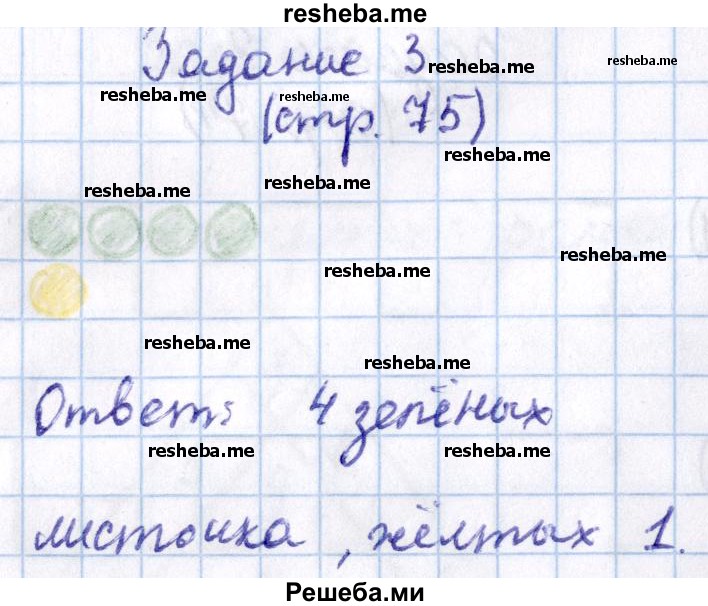 resheba.me
Задание 3 resheba.me resheba.me
resheba.me resheba.me
(стр. 75)
resheba.me
resheba.me resheba.me
resheba.me
resheba.me
resheba.me
resheba.me
Ответ: 4 зелёных
resheba.me resheba.me
листочка, жёлтых 1.
Решеба.ми